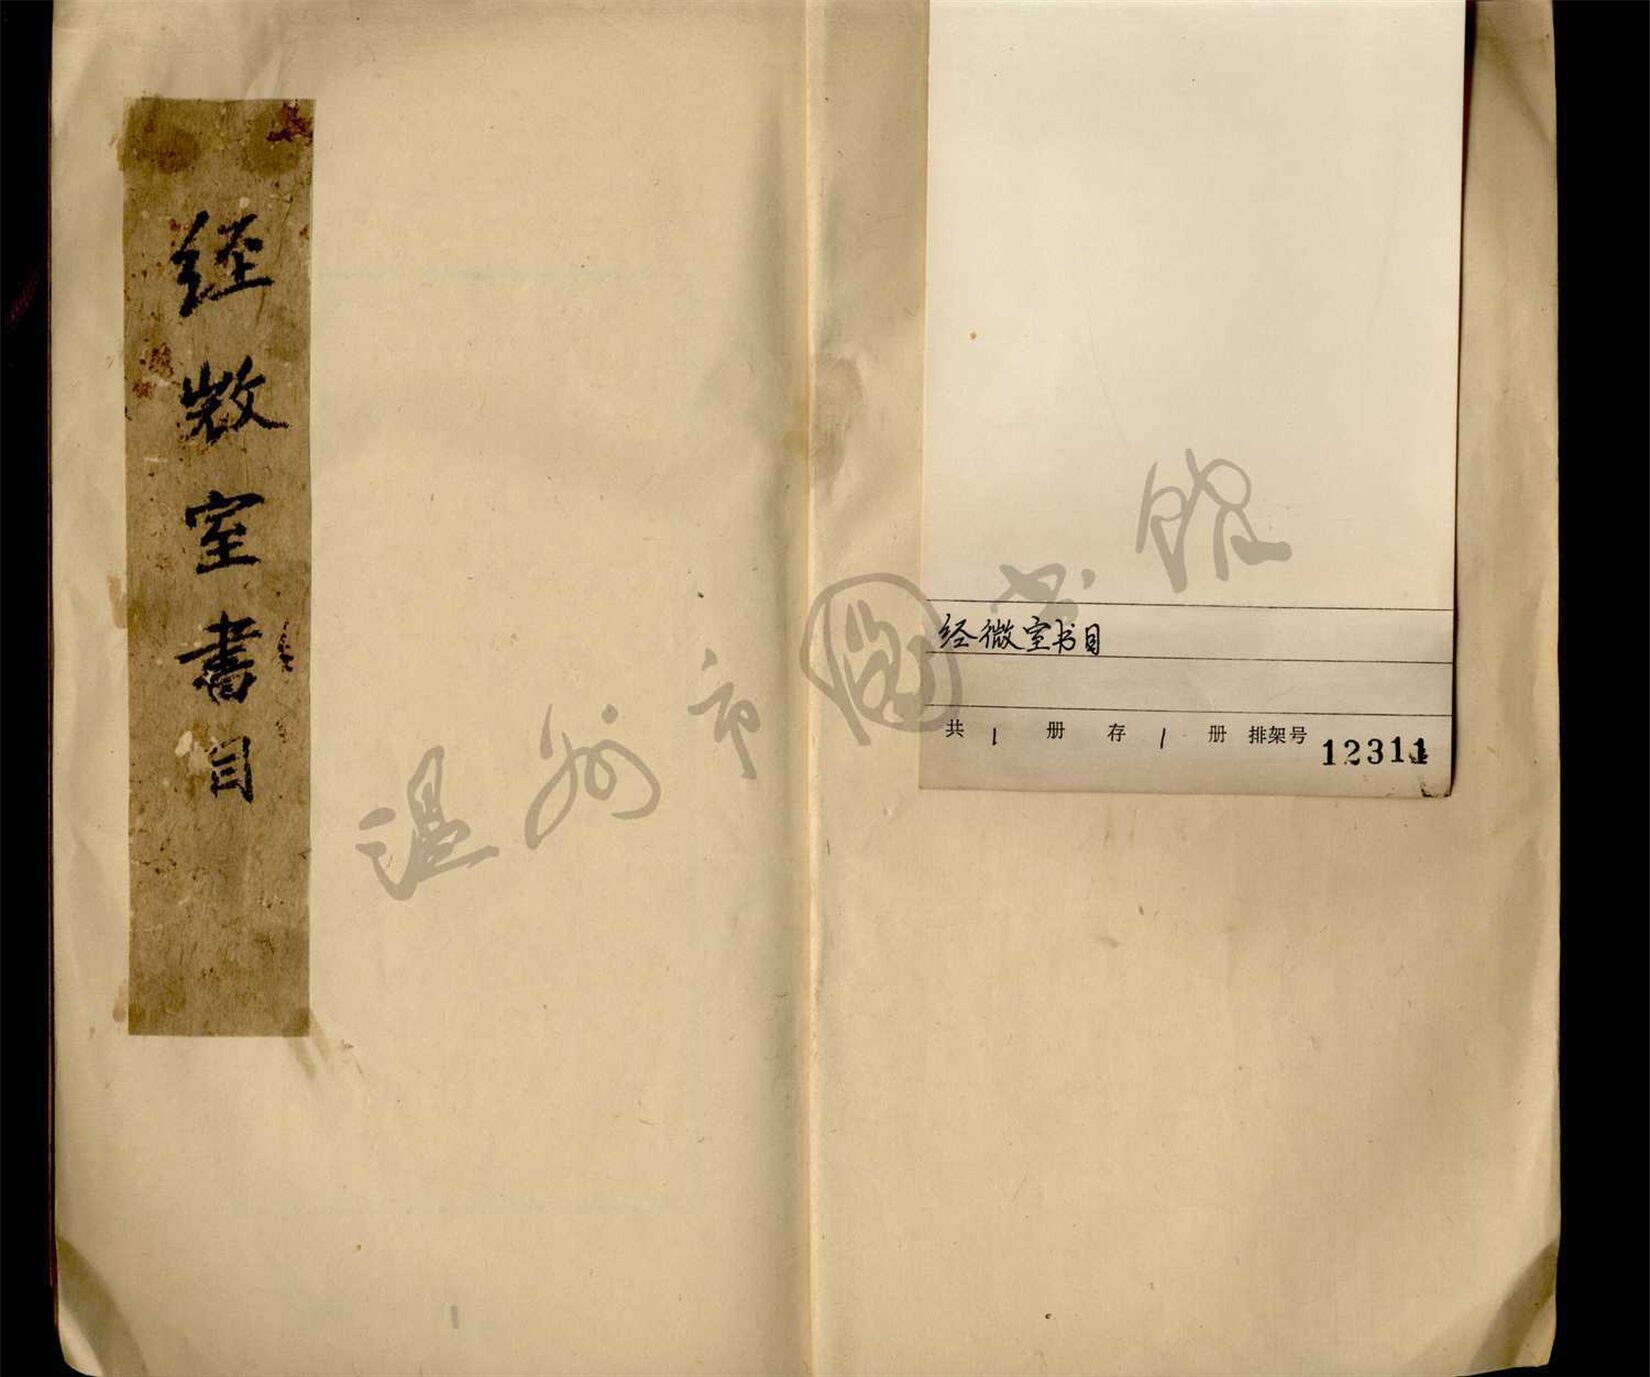 经𢼸室書目
经微室书目
共 1 册 存 1 册 排架号 12311
温州市图书馆